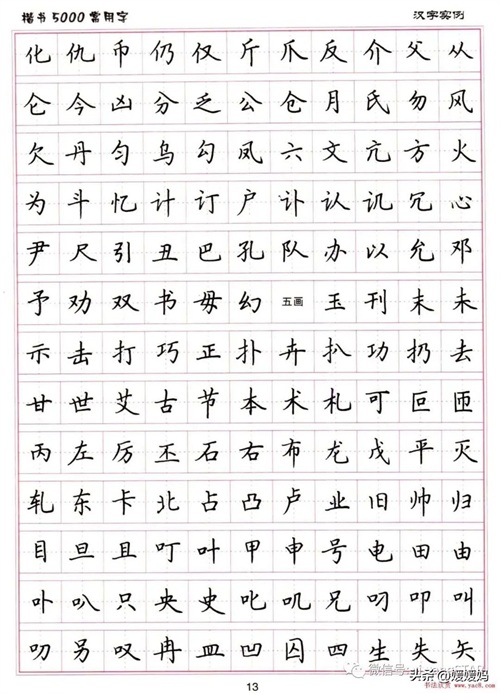 楷书5000常用字 汉字实例
化仇币仍仅斤爪反介父从
仑今凶分乏公仓月氏勿风
欠丹匀乌勾凤六文亢方火
为斗忆计订户讣认讥冗心
尹尺引丑巴孔队办以允邓
予劝双书毋幻五画玉刊末未
示击打巧正扑卉扒功扔去
甘世艾古节本术札可叵匝
丙左厉丕石右布龙戊平灭
轧东卡北占凸卢业旧帅归
目旦且叮叶甲申号电田由
卟叭只央史叱叽兄叼叩叫
叻另叹冉皿凹囚四生失矢
微信号:
头条@媛媛妈
13
书法欣赏 www.yac8.com